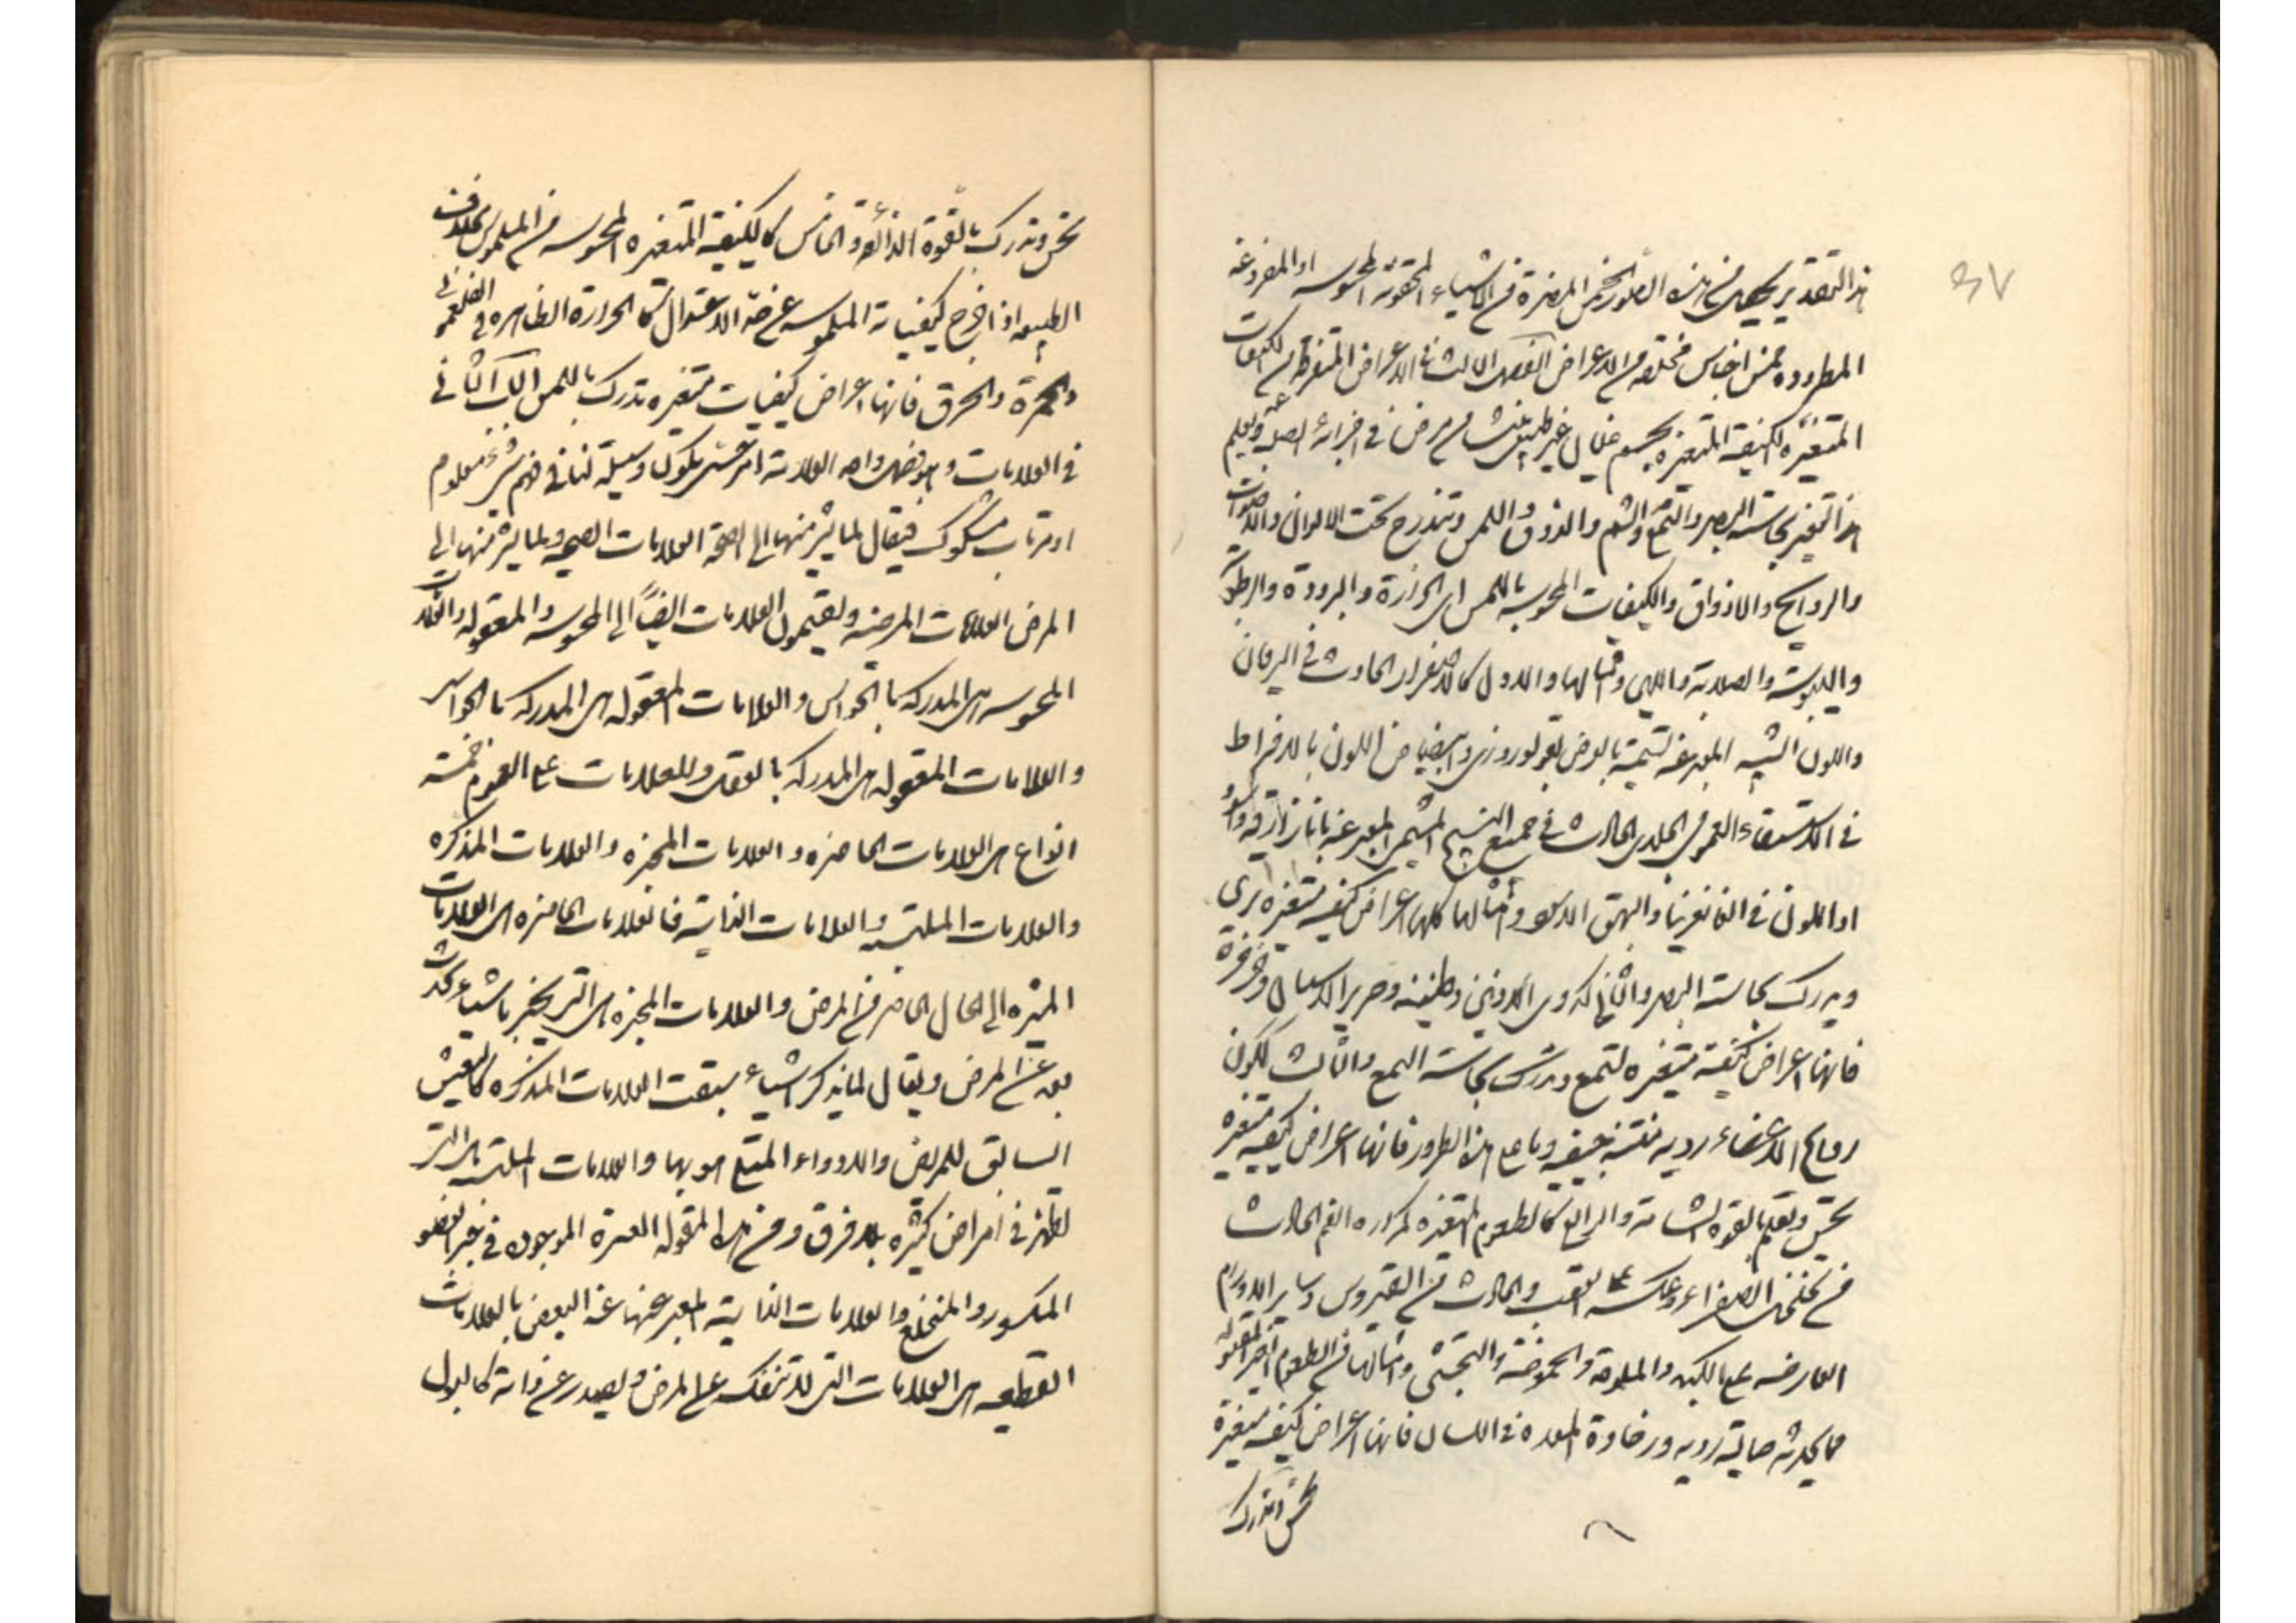 ٤٧
هذا التقدير يحصل من هذه الصور الخمس المضرة من الاشياء المحقونة المحبوسة او المفروغة
المطرودة خمس اجناس مختلفة من الاعراض الفصل الثالث في الاعراض المتفرقة من الكيفيات
المتغيرة الكيفية المتغيرة بجسم غير طبيعي ينشأ من مرض في اجزائه الصلبة ويعلم
هذا التغير بحاسة البصر والسمع والشم والذوق واللمس وتندرج تحت الالوان والاصوات
والروايح والاذواق والكيفيات المحسوسة باللمس اي الحرارة والبرودة والرطوبة
واليبوسة والصلابة واللين وامثالها والاول كالاصفرار الحادث في اليرقان
واللون الشبيه المعبر عنه تسمية بالمرض بقولوروزي وابيضاض اللون بالافراط
في الاستسقاء اللحمي الجلدي الحادث في جميع النسيج الشحمي المعبر عنه بانازارقه واسوداد
او اللون في الغانغرينا والبهق الاسود وامثالها كلها اعراض كيفية متغيرة ترى
ويدرك بحاسة البصر والثاني كدوي الاذنين وطنينه وصرير الاسنان وخرخرة
فانها اعراض كيفية متغيرة تسمع وتدرك بحاسة السمع والثالث ككون
روايح الاعضاء ردية منتنة جيفية وما على هذا الطور فانها اعراض كيفية متغيرة
تحس وتعلم بالقوة الشامة والرابع كالطعوم المتغيرة كمرارة الفم الحادث
من الصفراء وعكسه على القلب والحادث من القيروس وساير الاورام
العارضة على الكبد والملوحة والحموضة والتجشي وامثالها من الطعوم الغير المقبولة
مما يحدثه حالية ردية ورخاوة المعدة في اللسان فانها اعراض كيفية متغيرة
تحس وتدرك
تحس وتدرك بالقوة الذائقة والخامس كالكيفية المتغيرة المحسوسة من الملموس بخلاف
الطبيعة اذا خرج كيفياته الملموسة عن حد الاعتدال كالحرارة الظاهرة في الفلغموني
والحمرة والحرق فانها اعراض كيفيات متغيرة تدرك باللمس الباب الثاني
في العلامات وهو فصل واحد العلامة امر حسي يكون وسيلة لنا في فهم شئ معلوم
او مرتاب مشكوك فيقال لما يشير منها الى الصحة العلامات الصحية ولما يشير منها الى
المرض العلامات المرضية ويقسمون العلامات ايضاً الى المحسوسة والمعقولة والعلامات
المحسوسة هي المدركة بالحواس والعلامات المعقولة هي المدركة بالحواس
والعلامات المعقولة هي المدركة بالعقل وللعلامات على العموم خمسة
انواع هي العلامات الحاضرة والعلامات المخبرة والعلامات المذكرة
والعلامات الملتبسة والعلامات الذاتية فالعلامات الحاضرة هي العلامات
المشيرة الى الحال الحاضر من المرض والعلامات المخبرة هي التي يخبر باشياء تحدث
بعد عن المرض ويقال لما يذكر اشياء سبقت العلامات المذكرة كالتعيش
السابق للمريض والادواء المبتلى هو بها والعلامات الملتبسة هي التي
تظهر في امراض كثيرة بلا فرق ومن هذا المقولة العسرة الموجود في غير العضو
المكسور والمنخلع والعلامات الذاتية المعبر عنها عند البعض بالعلامات
القطعية هي العلامات التي لا تنفك عن المرض ويصدر عن ذاته كالبول